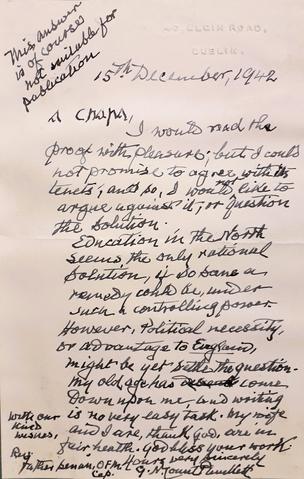 This answer
is of course
not suitable for
publication
40, ELGIN ROAD,
DUBLIN.
15th December, 1942
A Chara,
I would read the
proof with pleasure; but I could
not promise to agree with its
tenets; and so, I would not like to
argue against it, or question
the Solution.
Education in the North
seems the only rational
Solution, if so sane a
remedy could be, under
such a controlling power.
However, Political necessity,
or advantage to England,
might be yet settle the question.
My old age has come
down upon me, and writing
is no very easy task. My wife
and I are, thank God, are in
fair health. God bless your work
Yours very sincerely
G. N. Count Plunkett
With our
kind
wishes,
Rev.
Father Senan, O.F.M.
Cap.